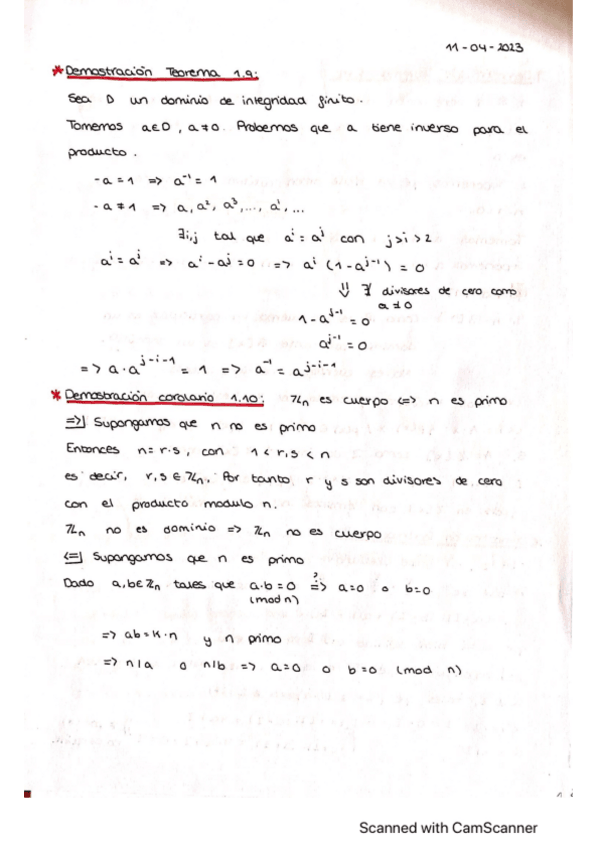 11-04-2023
*Demostración Teorema 1.9:
Sea D un dominio de integridad finito.
Tomemos a∈D, a≠0. Probemos que a tiene inverso para el
producto.
- a = 1 => a⁻¹ = 1
- a ≠ 1 => a, a², a³, ..., aⁱ, ...
∃i,j tal que aⁱ = aʲ con j>i>2
aⁱ = aʲ => aⁱ - aʲ = 0 => aⁱ (1 - aʲ⁻ⁱ) = 0
⇓ ∄ divisores de cero como
a ≠ 0
1 - aʲ⁻ⁱ = 0
aʲ⁻ⁱ = 0
=> a · aʲ⁻ⁱ⁻¹ = 1 => a⁻¹ = aʲ⁻ⁱ⁻¹
*Demostración corolario 1.10: ℤn es cuerpo <=> n es primo
=>| Supongamos que n no es primo
Entonces n = r·s, con 1 < r,s < n
es decir, r,s ∈ ℤn. Por tanto r y s son divisores de cero
con el producto modulo n.
ℤn no es dominio => ℤn no es cuerpo
<=| Supongamos que n es primo
Dado a,b∈ℤn tales que a·b = 0 ?=> a=0 o b=0
(mod n)
=> ab = K·n y n primo
=> n|a o n|b => a=0 o b=0 (mod n)
Scanned with CamScanner